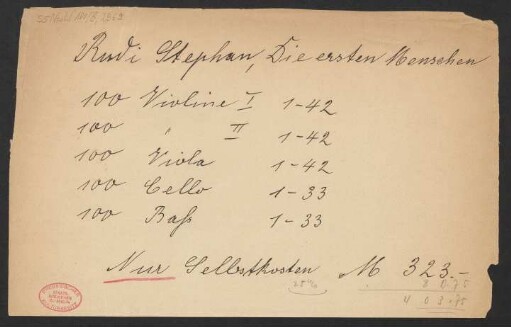 Rudi Stephan, Die ersten Menschen
100 Violine I 1-42
100 " II 1-42
100 Viola 1-42
100 Cello 1-33
100 Baſs 1-33
Nur Selbstkosten M 323.-
25% 80.75
403.75